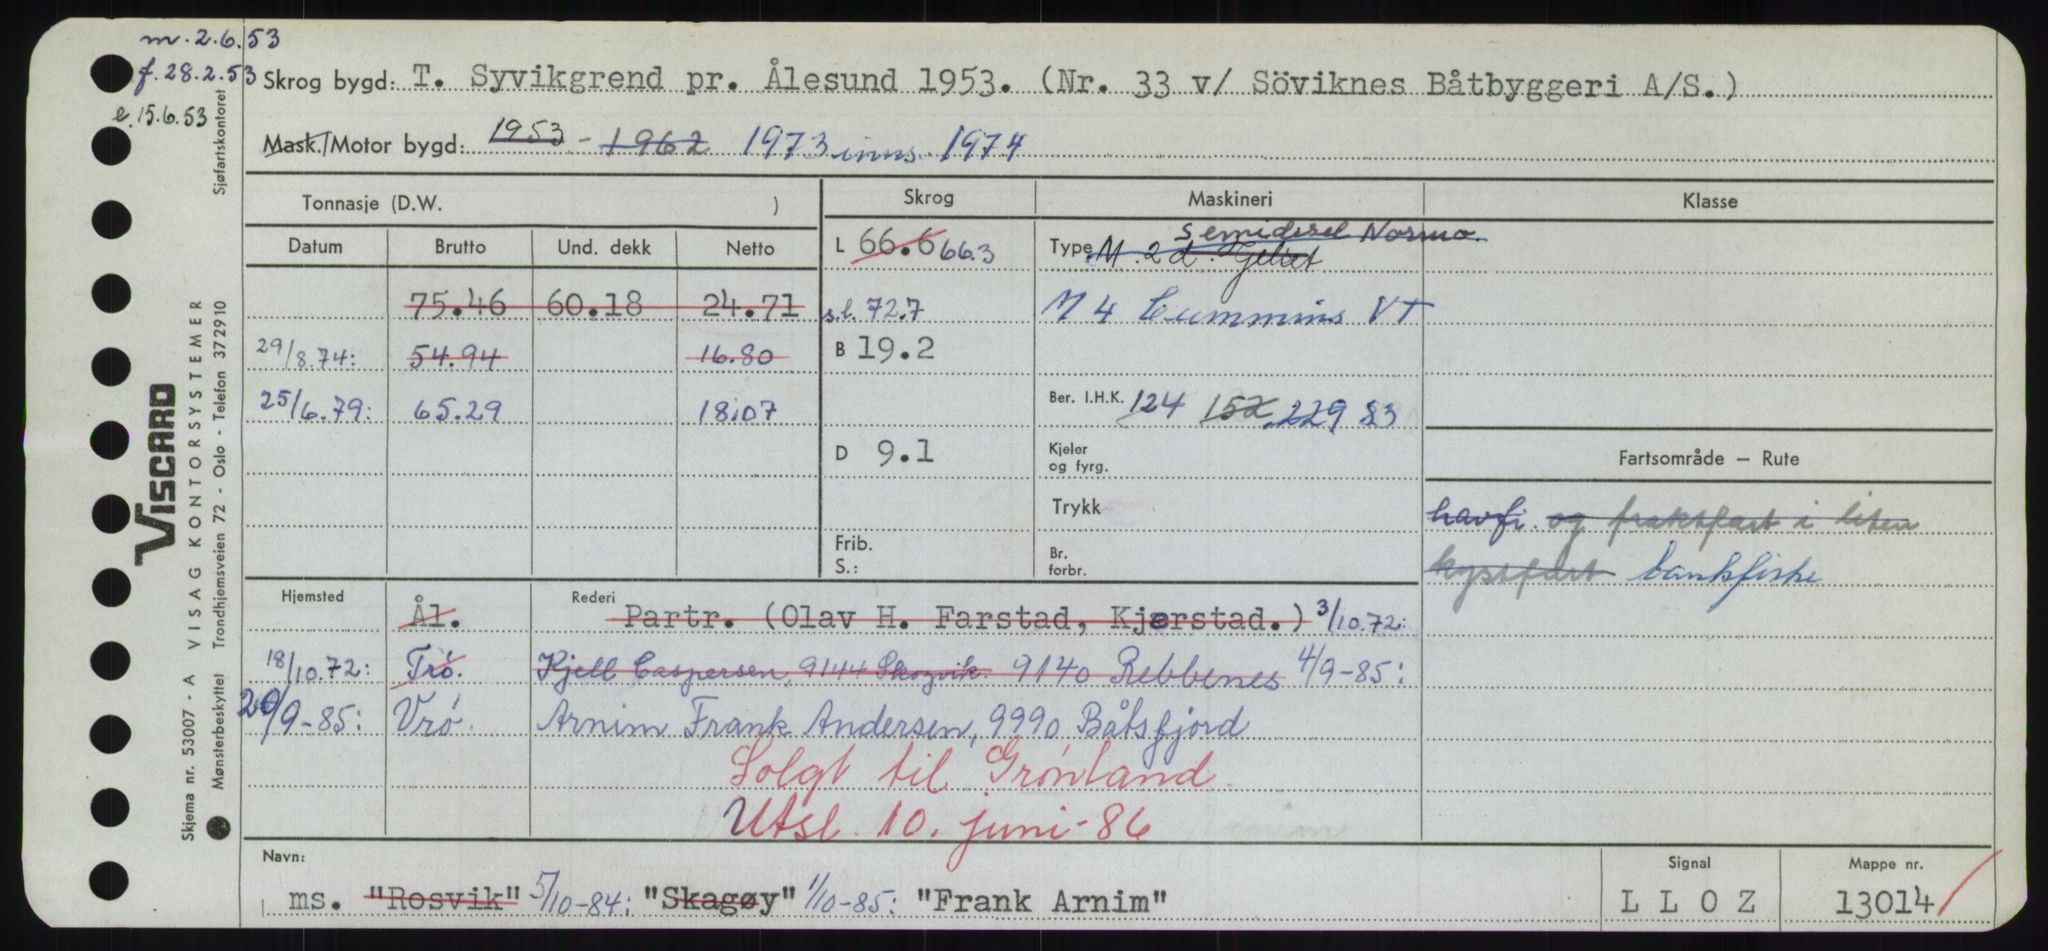 m. 2.6.53
f. 28.2.53
e. 15.6.53
Skrog bygd: T. Syvikgrend pr. Ålesund 1953. (Nr. 33 v/ Söviknes Båtbyggeri A/S.)
Mask./Motor bygd: 1953 - 1962 1973 inns. 1974
Tonnasje (D.W. )
Skrog
Maskineri
Klasse
Datum Brutto Und. dekk Netto
75.46 60.18 24.71
29/8.74: 54.94 16.80
25/6.79: 65.29 18.07
L 66.6 66.3
s.l. 72.7
B 19.2
D 9.1
Frib.
S.:
semidisel Normo
Type M. 2 d. Gjeltet
M 4 Cummins VT
Ber. I.H.K. 124 152 229 83
Kjeler
og fyrg.
Trykk
Br.
forbr.
Fartsområde – Rute
havfi. og fraktfart i liten
kystfart bankfiske
Hjemsted Ål. Rederi Partr. (Olav H. Farstad, Kjerstad.) 3/10.72:
18/10.72: Trö. Kjell Caspersen, 9144 Skogvik. 9140 Rebbenes 4/9-85:
20/9-85: Vrö. Arnim Frank Andersen, 9990 Båtsfjord
Solgt til Grönland.
Utsl. 10. juni-86
Navn:
ms. "Rosvik" 5/10-84: "Skagøy" 1/10-85: "Frank Arnim"
Signal
L L O Z
Mappe nr.
13014
VISCARD
VISAG KONTORSYSTEMER
Skjema nr. 53007 - A
Mønsterbeskyttet Trondhjemsveien 72 - Oslo - Telefon 372910 Sjøfartskontoret